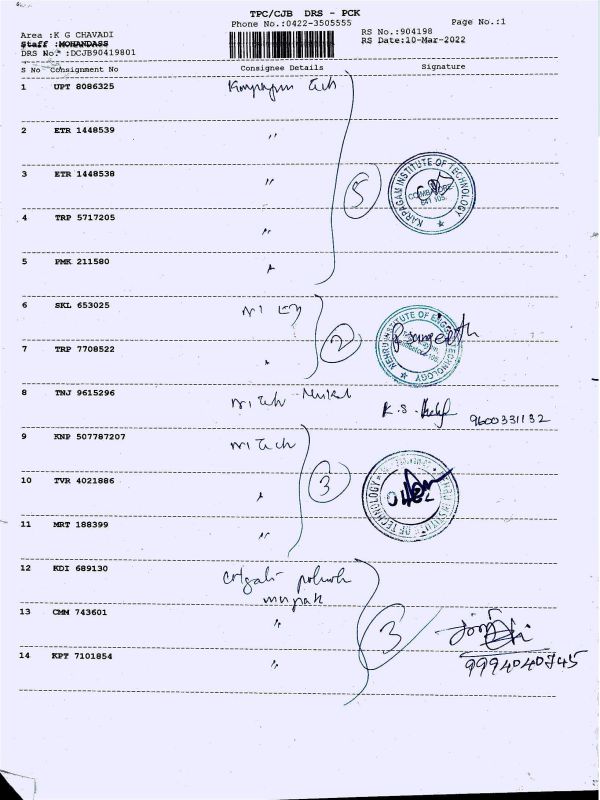 TPC/CJB DRS - PCK
Phone No.:0422-3505555
Page No.:1
Area :K G CHAVADI
RS No.:904198
Staff :MOHANDASS
RS Date:10-Mar-2022
DRS No. :DCJB90419801
S No Consignment No Consignee Details Signature
1 UPT 8086325 Tech
2 ETR 1448539 "
3 ETR 1448538 "
5
KARPAGAM INSTITUTE OF TECHNOLOGY
COIMBATORE
641 105.
4 TRP 5717205 "
5 PMK 211580 "
6 SKL 653025
2
NEHRU INSTITUTE OF ENGG TECHNOLOGY
7 TRP 7708522 "
8 TNJ 9615296 K.S. 9600331132
9 KNP 507787207 NI Tech
3
10 TVR 4021886 "
OF TECHNOLOGY
11 MRT 188399 "
12 KDI 689130
13 CMM 743601 "
3
14 KPT 7101854 "